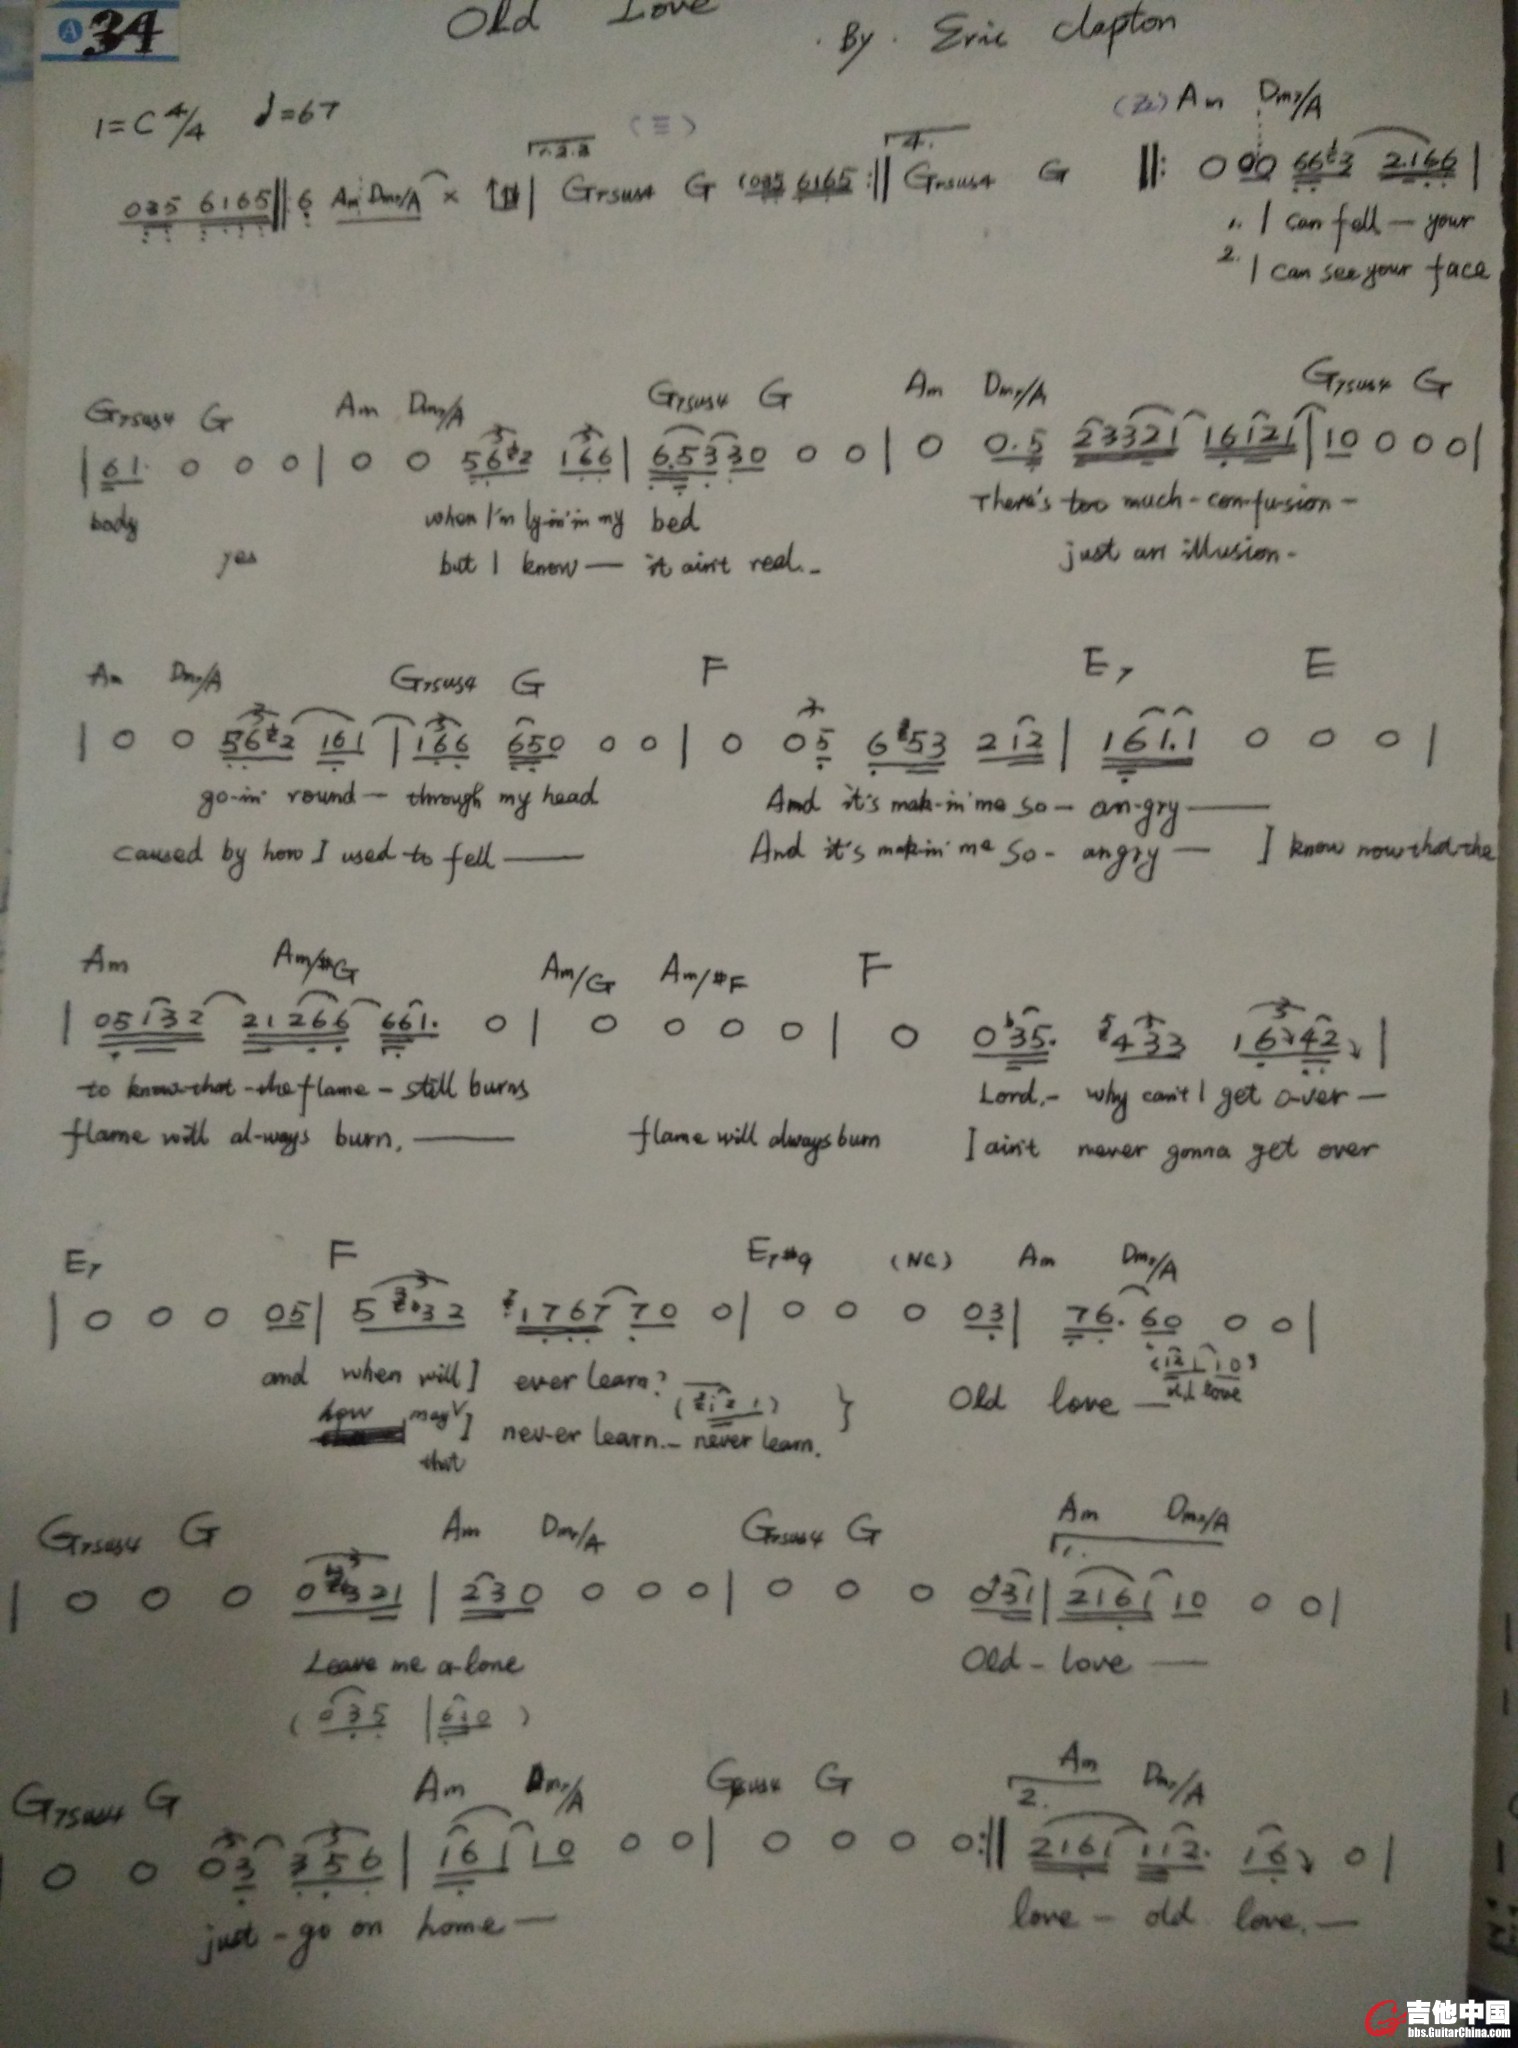 A 34
Old Love
By. Eric Clapton
1=C 4/4 ♩=67
(三)
Am Dm7/A
035 6165 ||: 6 Am Dm7/A × | 1.2.3 G7sus4 G (035 6165 :|| 4. G7sus4 G ||: 0 00 6623 2.166 |
1. I can fell — your
2. I can see your face
G7sus4 G Am Dm7/A G7sus4 G Am Dm7/A G7sus4 G
| 61. 0 0 0 | 0 0 562 166 | 6.5330 0 0 | 0 0.5 23321 16121 | 10 0 0 0 |
body when I'm ly-in' in my bed There's too much - con-fu-sion -
yes but I know — it ain't real.- just an illusion -
Am Dm7/A G7sus4 G F E7 E
| 0 0 562 161 | 166 650 0 0 | 0 05 653 212 | 161.1 0 0 0 |
go-in' round — through my head And it's mak-in' me so - an-gry —
caused by how I used to fell — And it's mak-in' me so - angry — I know now that the
Am Am/#G Am/G Am/#F F
| 05132 21266 661. 0 | 0 0 0 0 | 0 0 35. 433 16 42 |
to know that the flame - still burns Lord.- why can't I get o-ver —
flame will al-ways burn. — flame will always burn I ain't never gonna get over
E7 F E7#9 (NC) Am Dm7/A
| 0 0 0 05 | 5 32 1767 70 0 | 0 0 0 03 | 76. 60 0 0 |
(121 10)
and when will I ever learn? Old love — old love
how may I nev-er learn.- never learn. }
that
G7sus4 G Am Dm7/A G7sus4 G Am Dm7/A
1.
| 0 0 0 0321 | 230 0 0 0 | 0 0 0 031 | 2161 10 0 0 |
Leave me a-lone Old - love —
(035 | 610 )
G7sus4 G Am Dm7/A G7sus4 G Am Dm7/A
2.
0 0 03 356 | 161 10 0 0 | 0 0 0 0 :|| 2161 112. 16 0 |
just - go on home — love - old love. —
吉他中国
bbs.GuitarChina.com